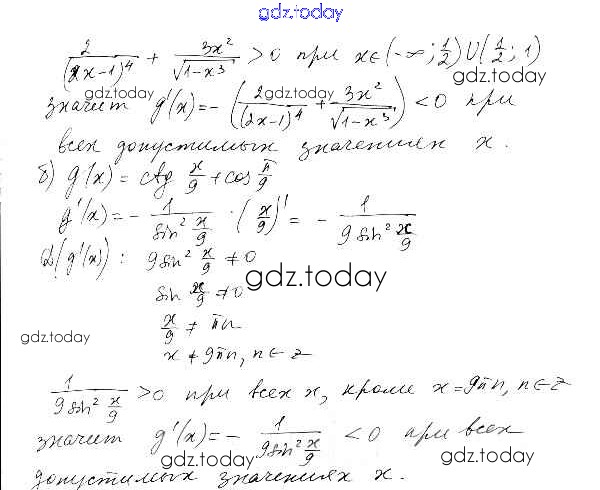 gdz.today
2/(2x-1)^4 + 3x^2/√(1-x^3) > 0 при x∈(-∞; 1/2)∪(1/2; 1)
gdz.today
gdz.today
gdz.today
значит g'(x) = -(2/(2x-1)^4 + 3x^2/√(1-x^3)) < 0 при
всех допустимых значениях x.
б) g(x) = ctg x/9 + cos π/9
g'(x) = - 1/(sin² x/9) · (x/9)' = - 1/(9 sin² x/9)
D(g'(x)): 9 sin² x/9 ≠ 0
gdz.today
sin x/9 ≠ 0
gdz.today
x/9 ≠ πn
x ≠ 9πn, n∈z
1/(9 sin² x/9) > 0 при всех x, кроме x = 9πn, n∈z
значит g'(x) = - 1/(9 sin² x/9) < 0 при всех
gdz.today
gdz.today
допустимых значениях x.